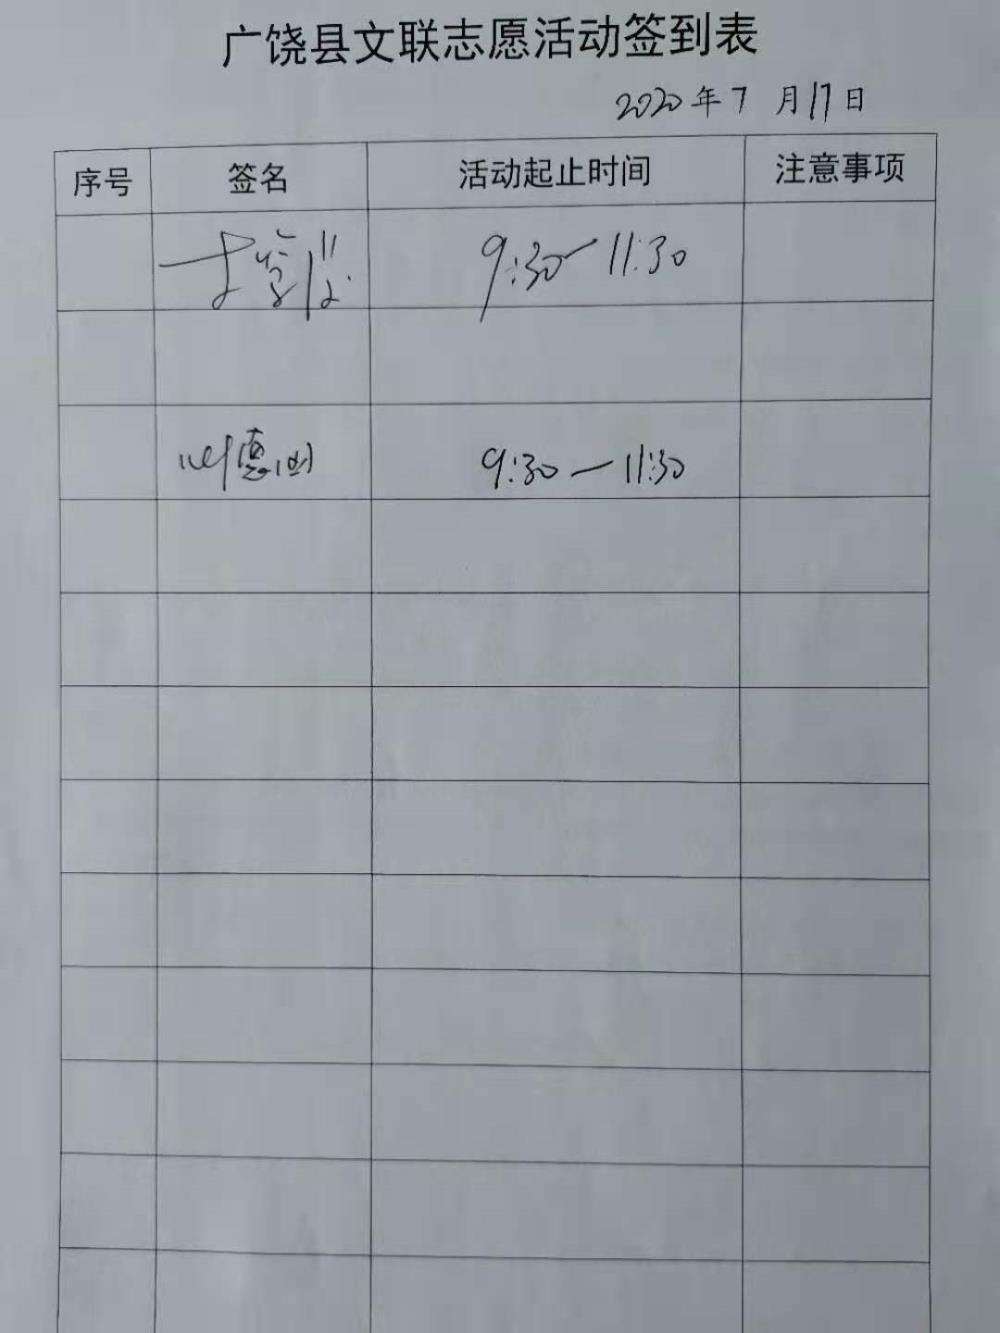 广饶县文联志愿活动签到表
2020年7月17日
序号 签名 活动起止时间 注意事项
9:30—11:30
9:30—11:30